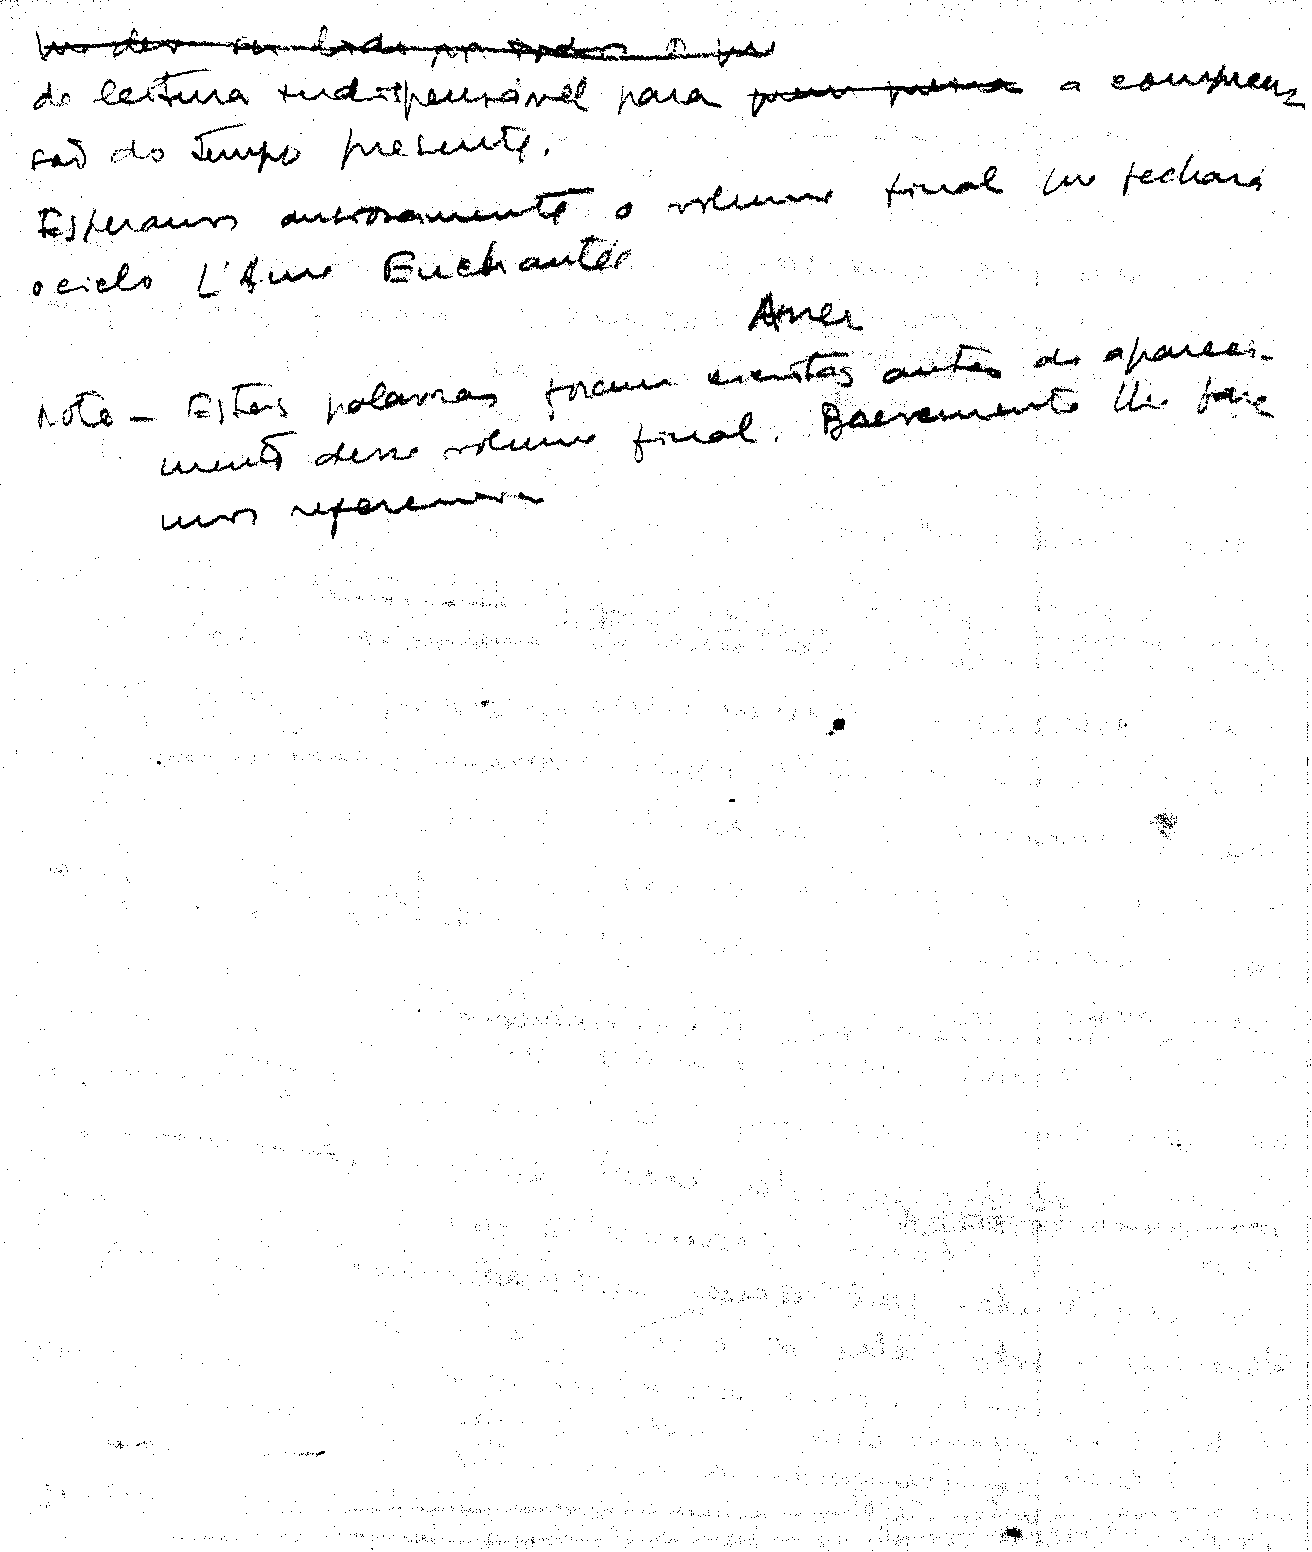 de leitura indispensável para a compreen
são do tempo presente.
Esperamos ansiosamente o volume final que fechará
o ciclo L'Ame Enchantée
Nota - Estas palavras foram escritas antes do apareci-
mento desse volume final. Brevemente lhe fare
mos referencia